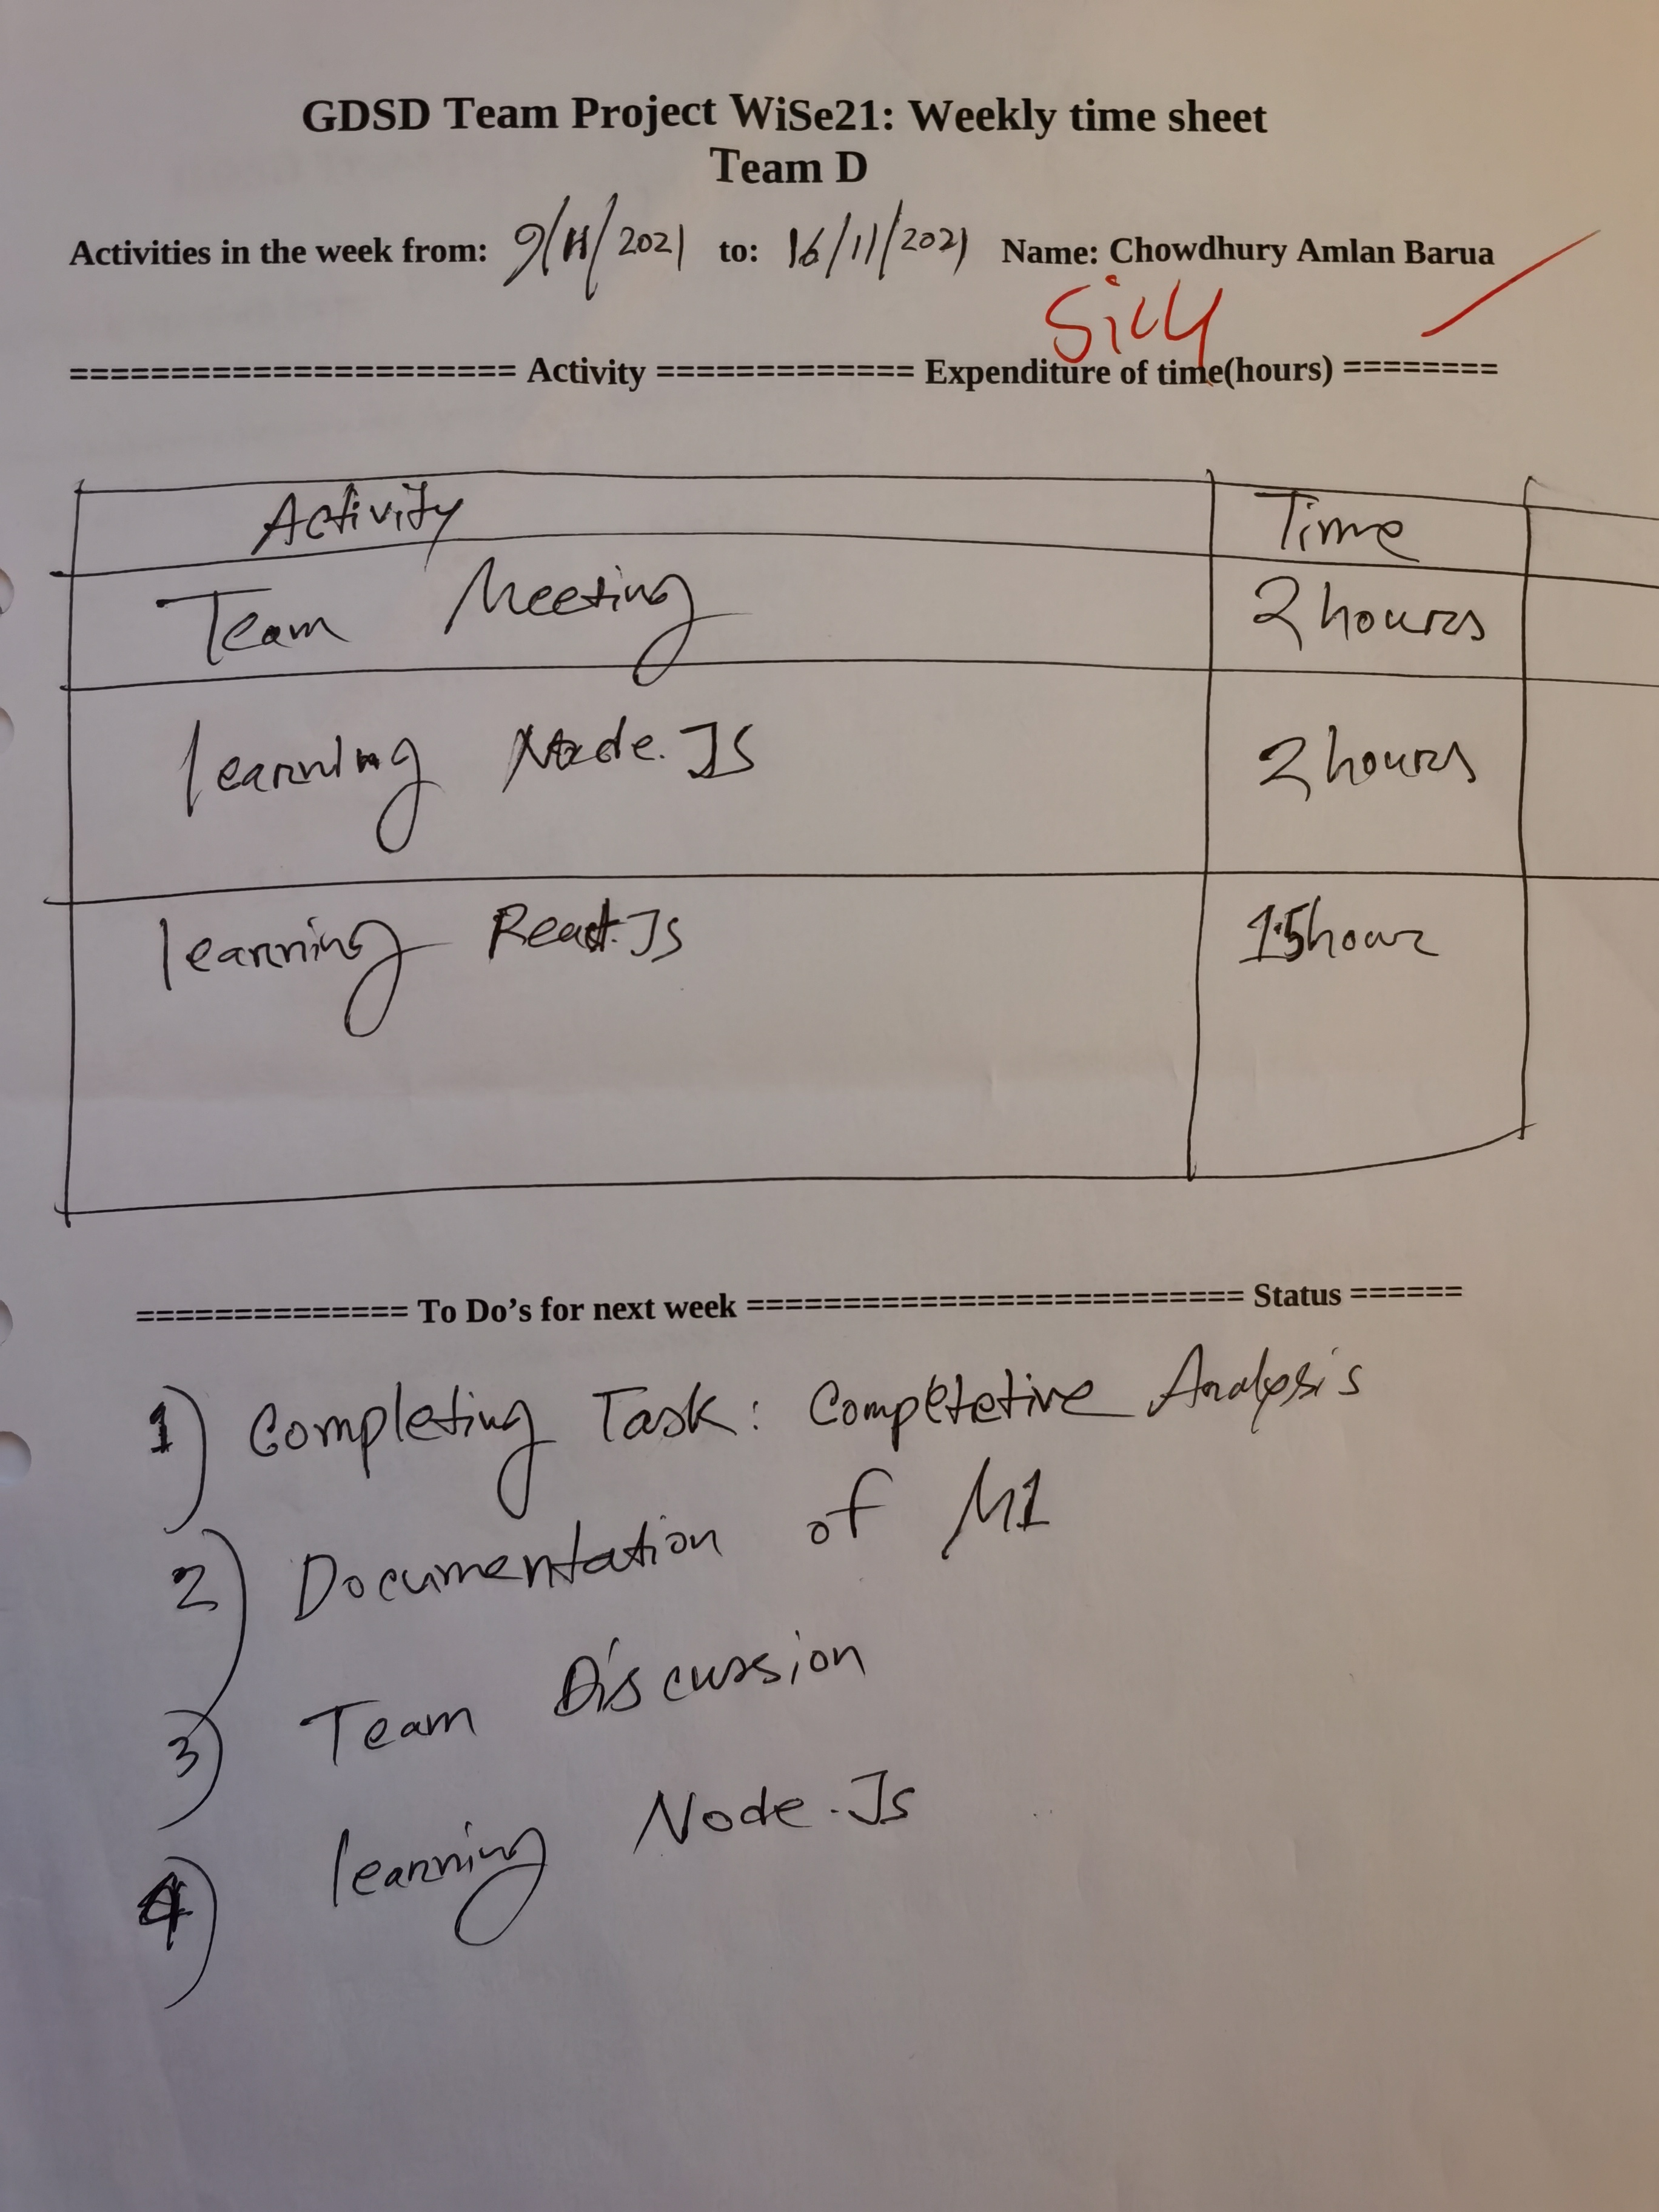 GDSD Team Project WiSe21: Weekly time sheet
Team D
Activities in the week from: 9/11/2021 to: 16/11/2021 Name: Chowdhury Amlan Barua
====================== Activity ============= Expenditure of time(hours) ========
Activity Time
Team Meeting 2 hours
learning Node.JS 2 hours
learning React.Js 1.5 hour
============== To Do's for next week ========================= Status ======
1) Completing Task: Competetive Analysis
2) Documentation of M1
3) Team Discussion
4) learning Node.Js